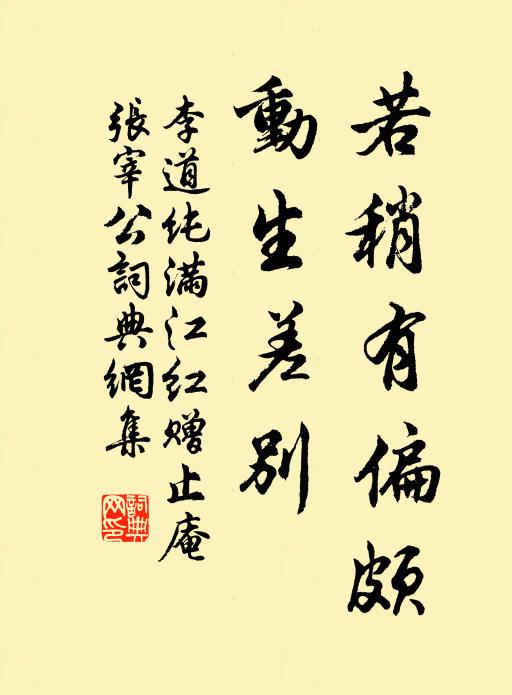 若稍有偏頗
動生差別
李道纯滿江红赠止庵
張宰公詞典網集
詞典網印